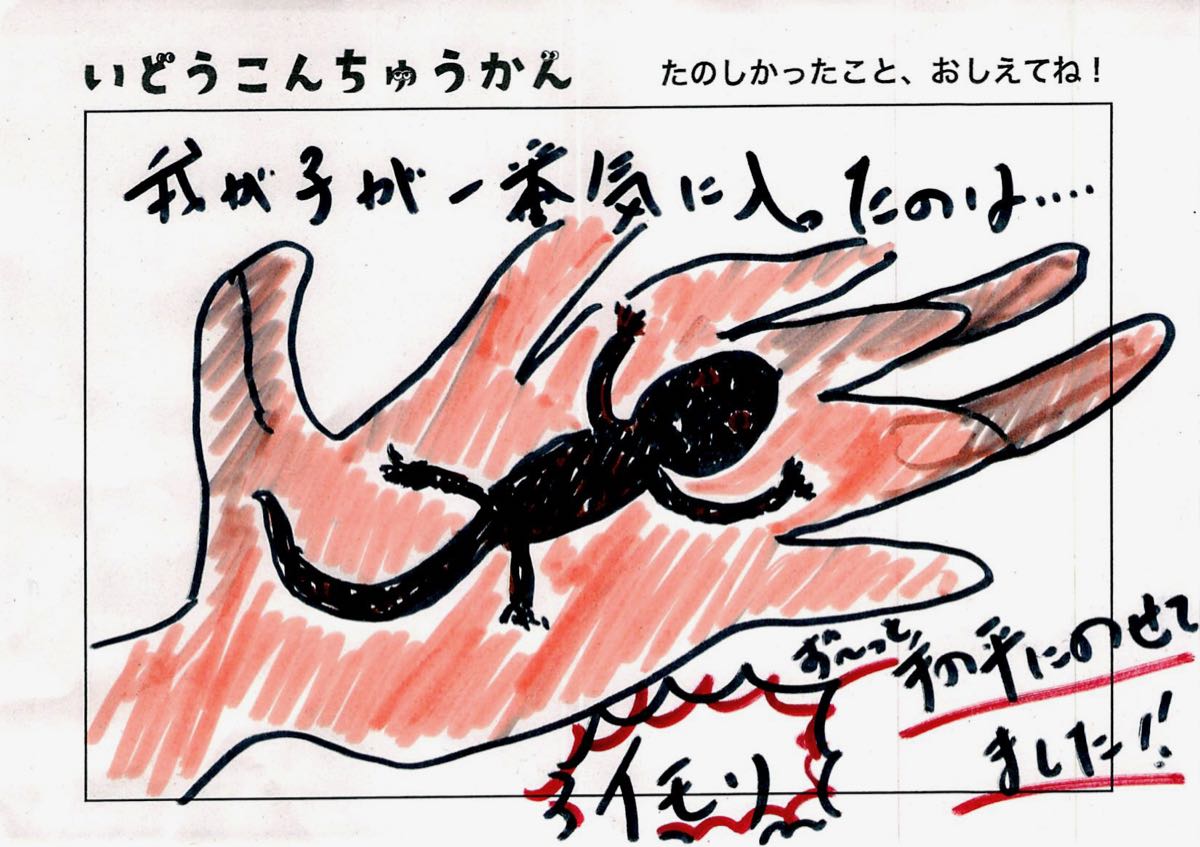 いどうこんちゅうかん
たのしかったこと、おしえてね！
我が子が一番気に入ったのは‥‥
ず〜っと、手の平にのせて
ました!!
イモリ